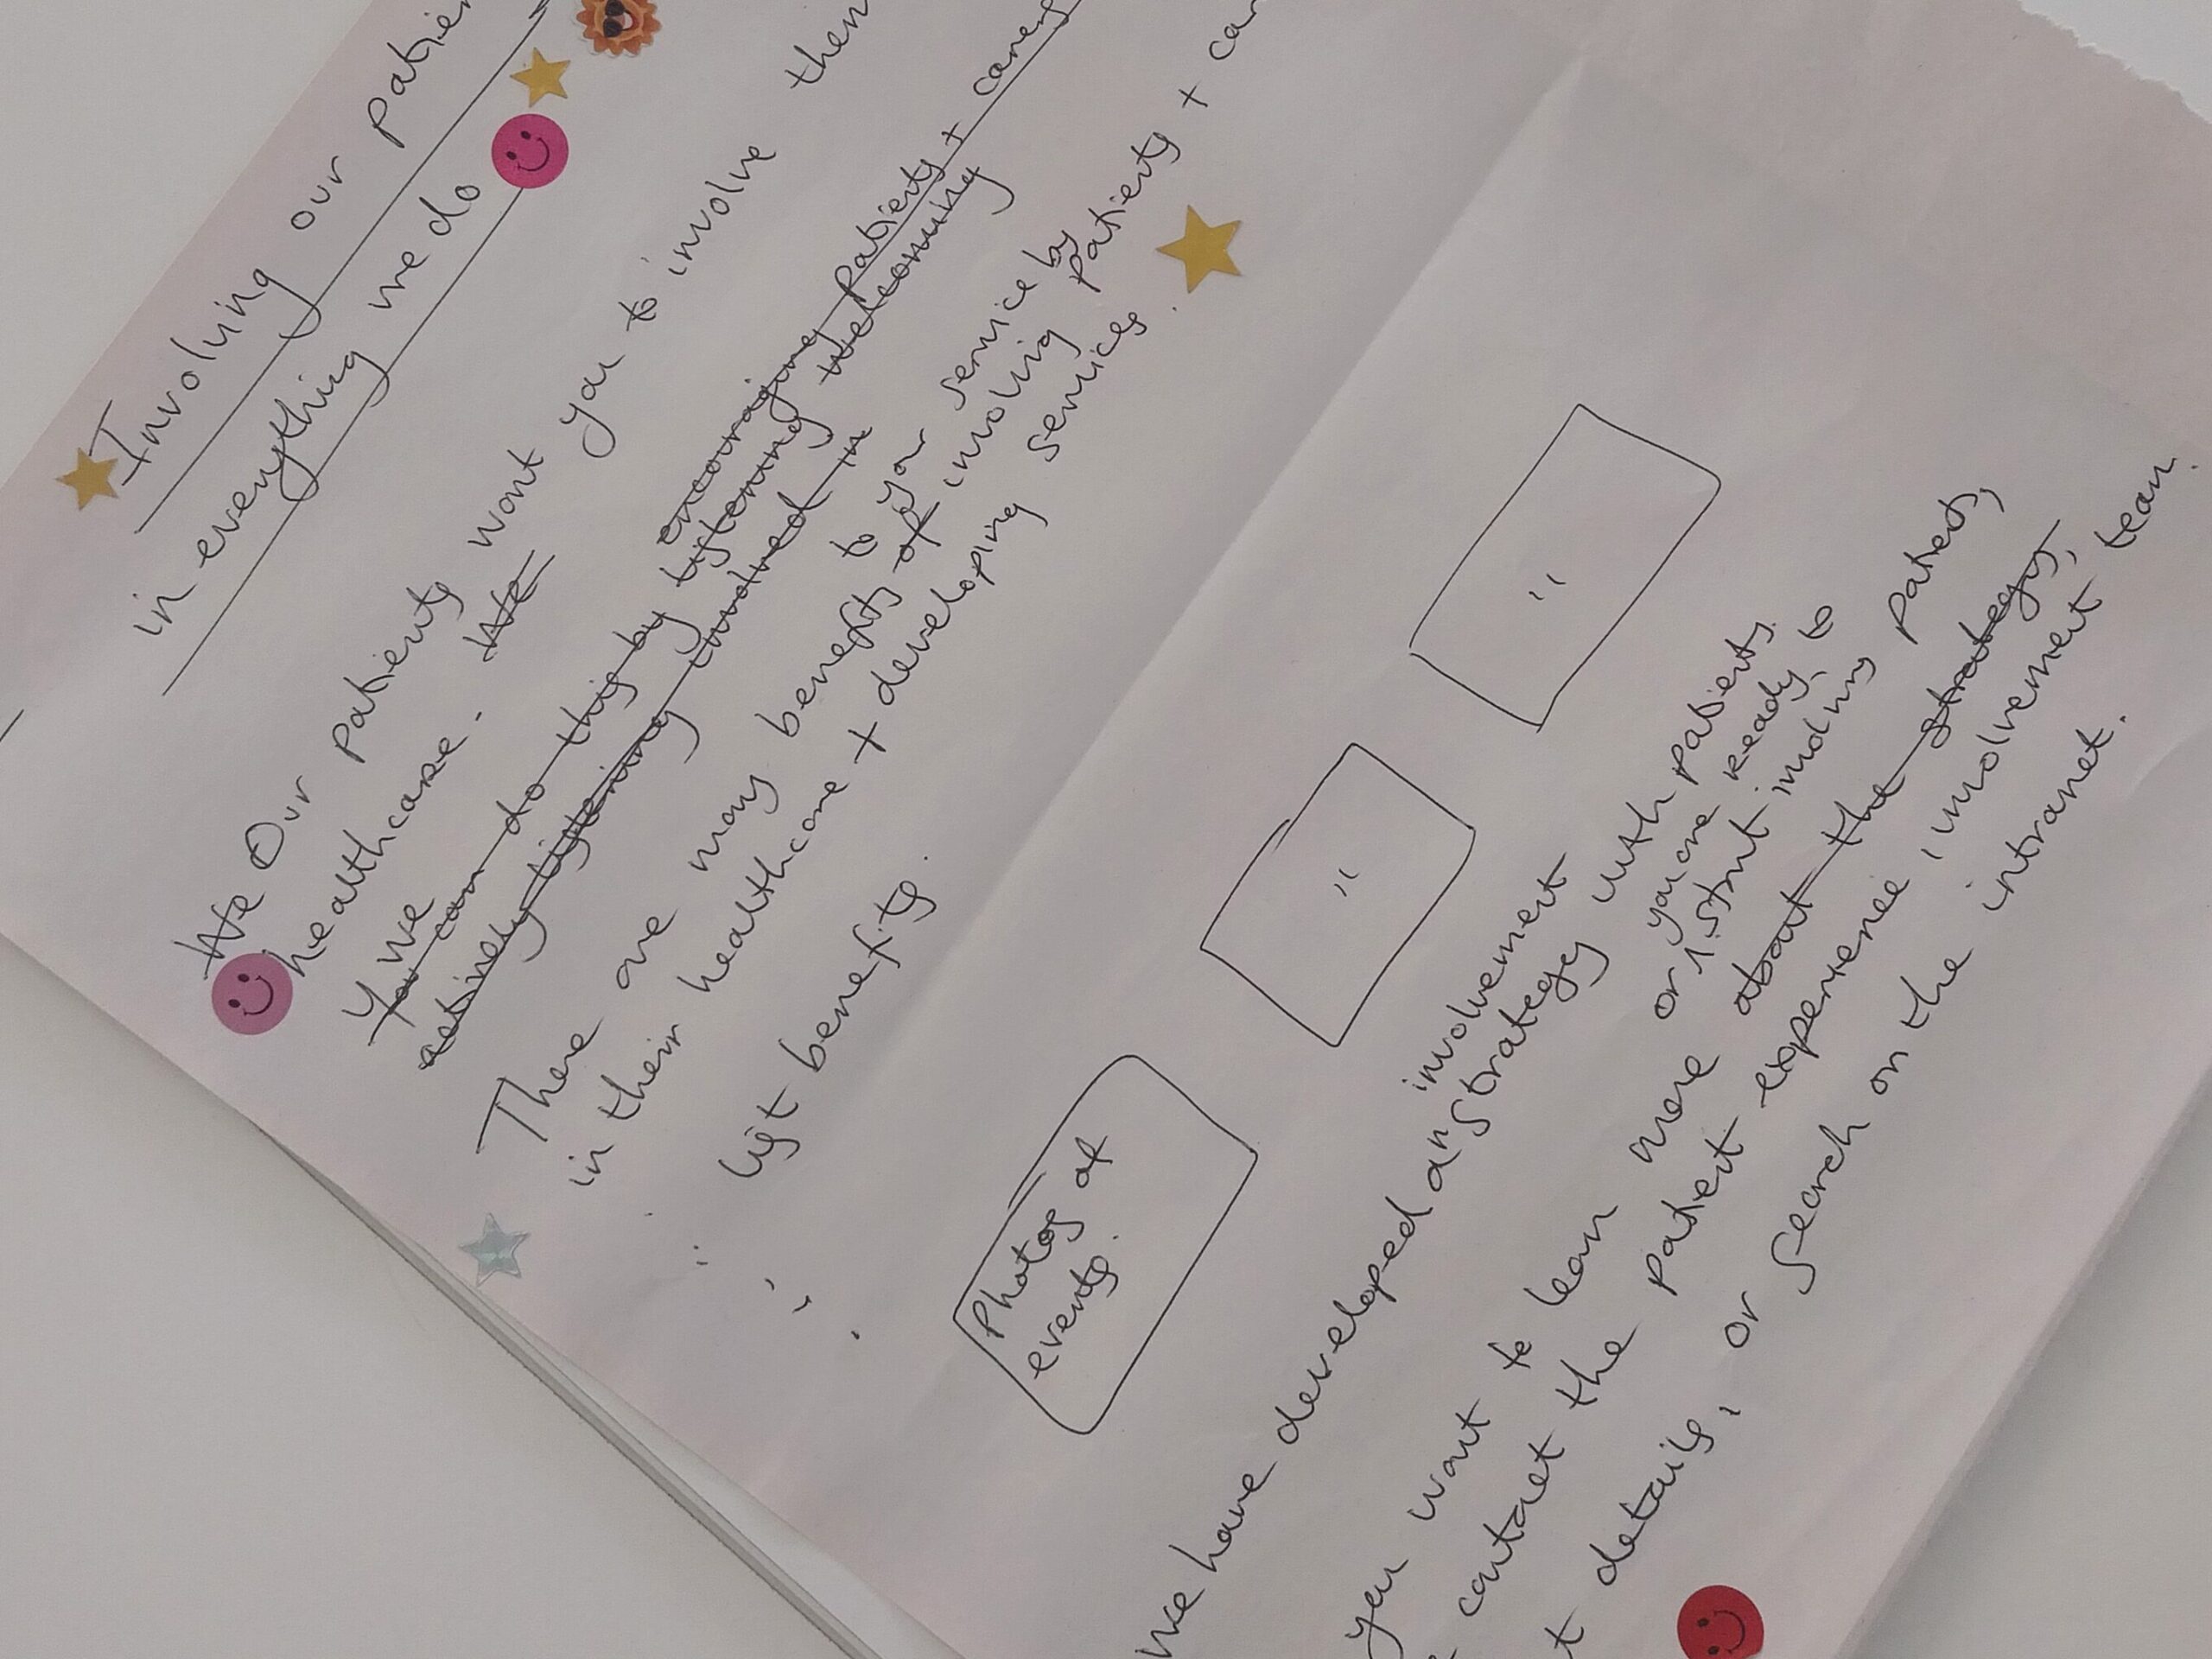 Involving our patien
in everything we do
We Our patients want you to involve then
healthcare. We
We encouraging patients + carers
You can do this by listening welcoming
actively listening involved in
There are many benefits to your service by
of involving patients + car
in their healthcare + developing services.
list benefits.
Photos of
events.
"
"
involvement
We have developed an strategy with patients.
you are ready to
or start involving patients,
you want to learn more about the strategy,
contact the patient experience, involvement team.
t details, or search on the intranet.